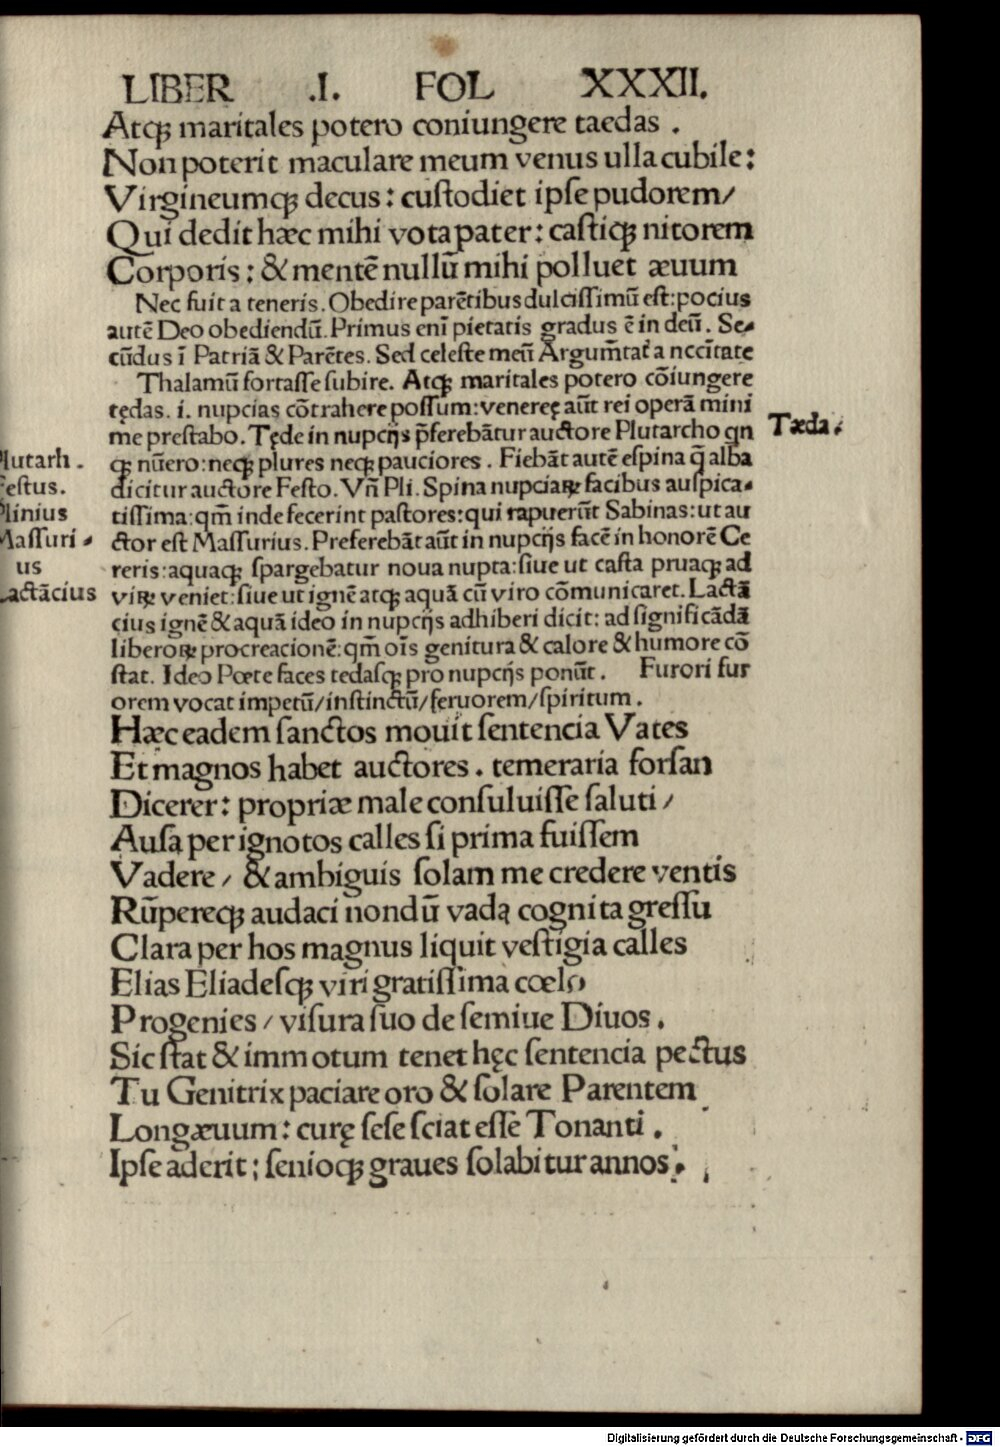 LIBER .I. FOL XXXII.
Atqꝫ maritales potero coniungere taedas .
Non poterit maculare meum venus ulla cubile:
Virgineumqꝫ decus: cuſtodiet ipſe pudorem/
Qui dedit hæc mihi vota pater: caſtiqꝫ nitorem
Corporis: & mentē nullū mihi polluet æuum
Nec fuit a teneris. Obedire parētibus dulciſſimū eſt: pocius
autē Deo obediendū. Primus eni pietatis gradus ē in deū. Se⸗
cūdus ī Patriā & Parētes. Sed celeſte meū Argum̄tat᷑ a nccītate
Thalamū fortaſſe ſubire. Atqꝫ maritales potero cōiungere
tędas. i. nupcias cōtrahere poſſum: venereę aūt rei operā mini
me preſtabo. Tęde in nupcijs p̄ferebātur auctore Plutarcho qn
qꝫ nūero: neqꝫ plures neqꝫ pauciores . Fiebāt autē eſpina q̄ alba
dicitur auctore Feſto. Vn̄ Pli. Spina nupciaꝝ facibus auſpica⸗
tiſſima: qm̄ inde fecerint paſtores: qui rapuerūt Sabinas: ut au
ctor eſt Maſſurius. Preferebāt aūt in nupcijs facē in honorē Ce
reris: aquaqꝫ ſpargebatur noua nupta: ſiue ut caſta pruaqꝫ ad
viꝝ veniet: ſiue ut ignē atqꝫ aquā cū viro cōmunicaret. Lactā
cius ignē & aquā ideo in nupcijs adhiberi dicit: ad ſignificādā
liberoꝝ procreacionē: qm̄ oīs genitura & calore & humore cō
ſtat. Ideo Poete faces tedaſqꝫ pro nupcijs ponūt. Furori fur
orem vocat impetū/inſtinctū/feruorem/ſpiritum.
Tæda.
lutarh.
Feſtus.
Plinius
Maſſuri⸗
us
Lactācius
Hæc eadem ſanctos mouit ſentencia Vates
Et magnos habet auctores. temeraria forſan
Dicerer: propriæ male conſuluiſſe ſaluti/
Auſą per ignotos calles ſi prima fuiſſem
Vadere/ & ambiguis ſolam me credere ventis
Rūpereqꝫ audaci nondū vadą cognita greſſu
Clara per hos magnus liquit veſtigia calles
Elias Eliadeſqꝫ viri gratiſſima cœlo
Progenies/viſura ſuo de ſemine Diuos.
Sic ſtat & immotum tenet hęc ſentencia pectus
Tu Genitrix paciare oro & ſolare Parentem
Longæuum: curę ſeſe ſciat eſſe Tonanti.
Ipſe aderit; ſenioqꝫ graues ſolabitur annos.
Digitalisierung gefördert durch die Deutsche Forschungsgemeinschaft - DFG